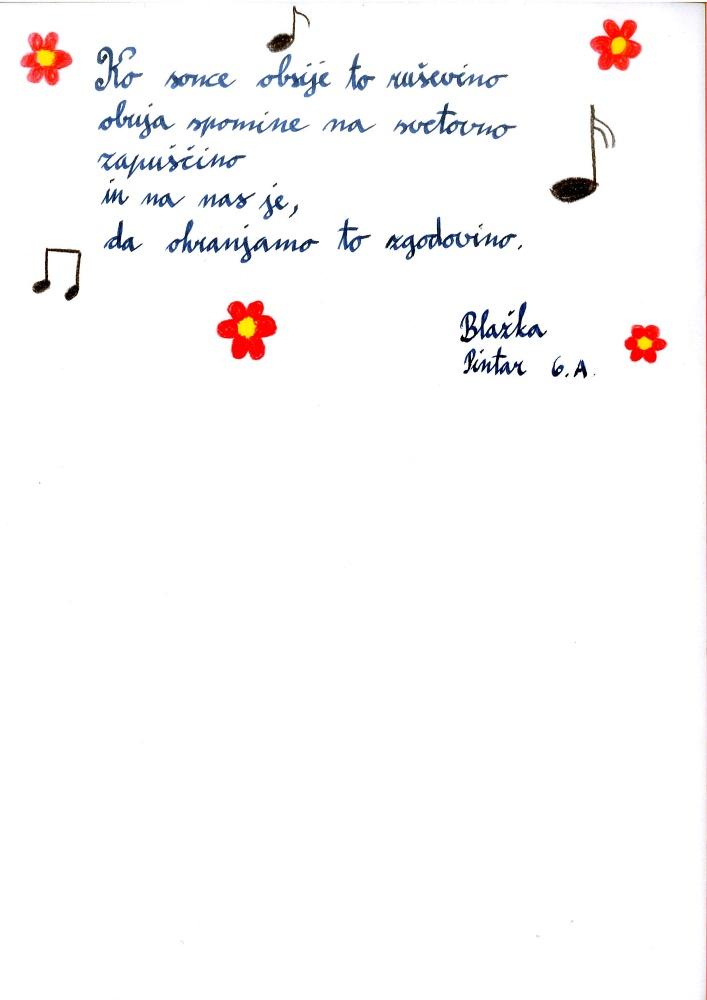 Ko sonce obsije to ruševino
obuja spomine na svetovno
zapuščino
in na nas je,
da ohranjamo to zgodovino.
Blažka
Pintar 6.A.